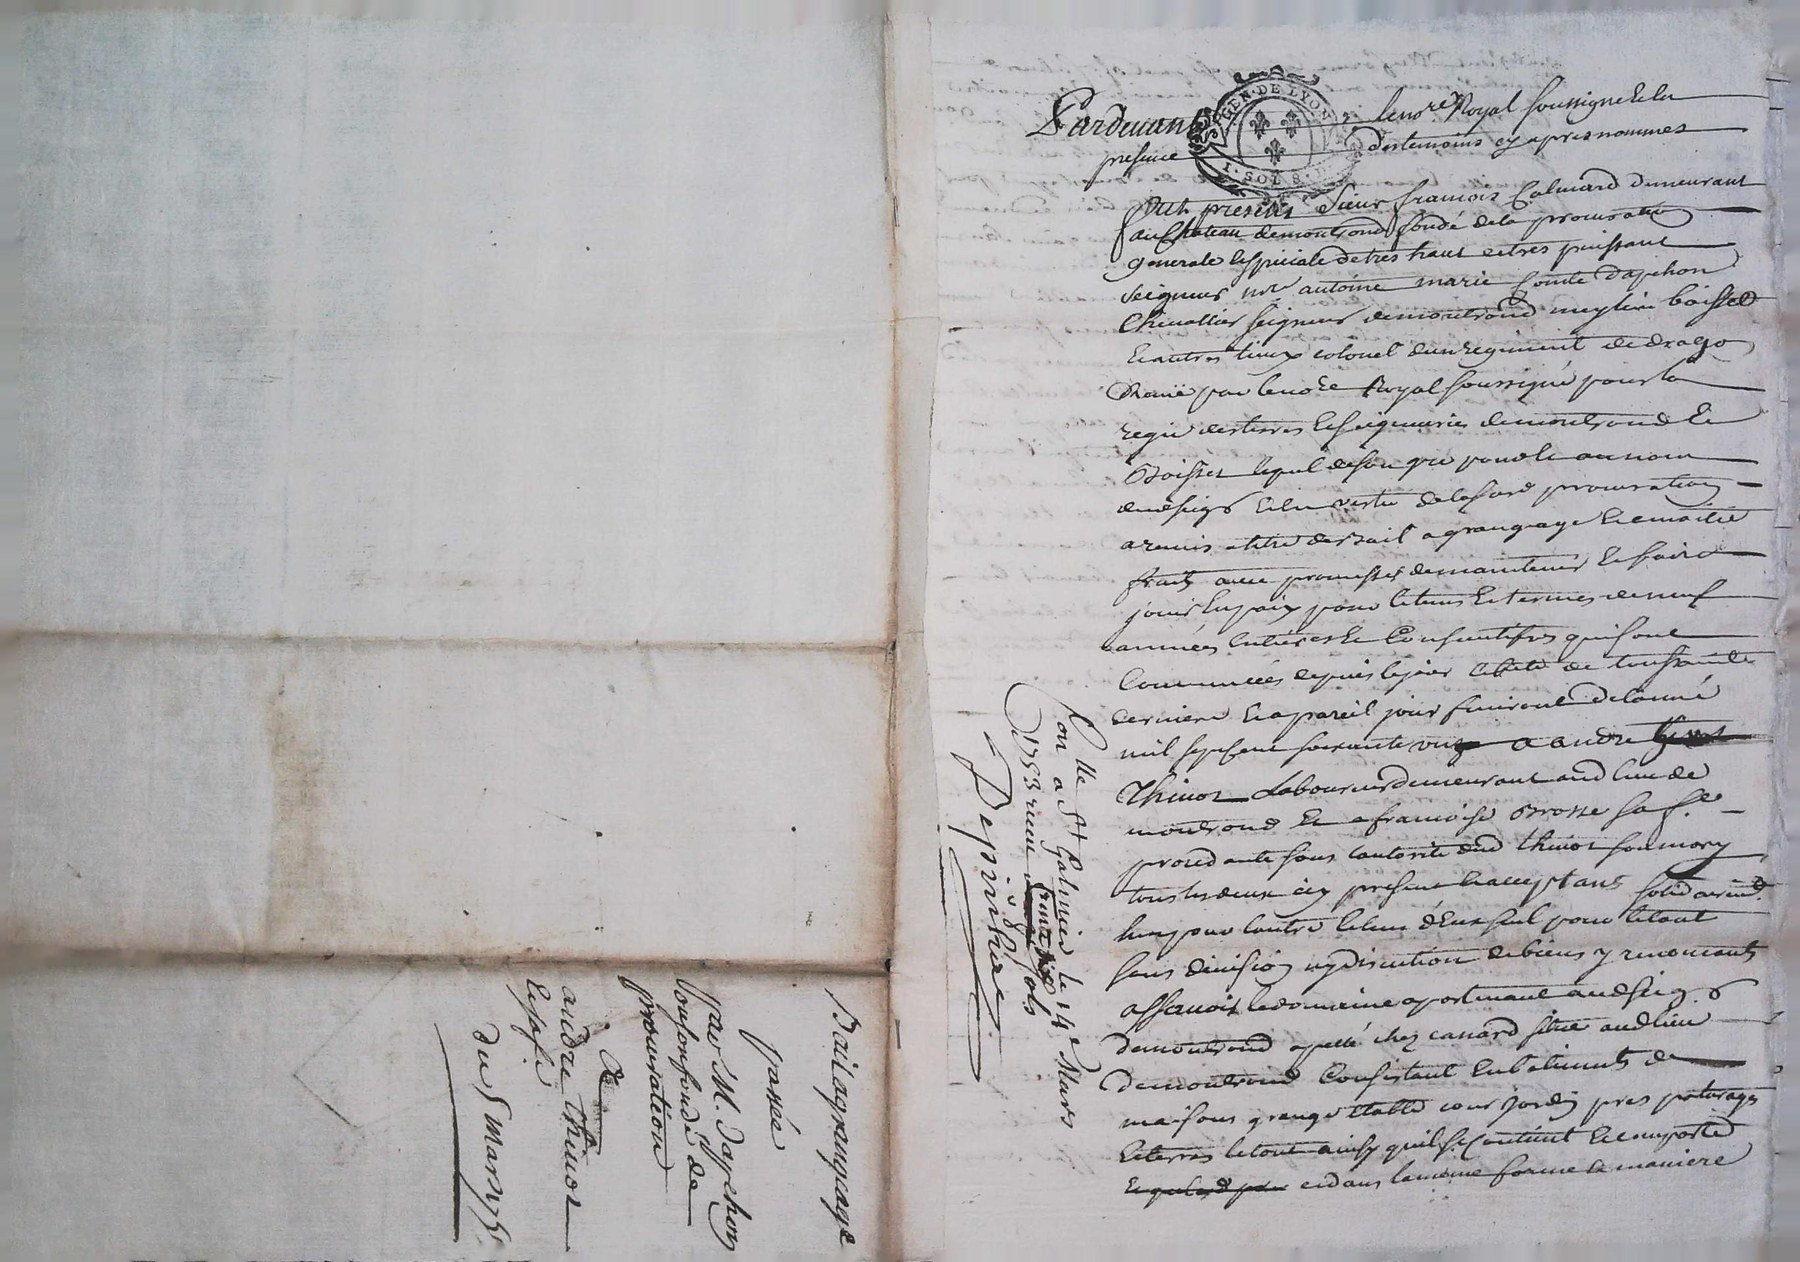 Pardevant le no.re Royal soussigné et en
GEN. DE LYON
I. SOL 8. D
presence des temoins cy apres nommes
fut present Sieur francois Calmard demeurant
au Chateau de montrond fondé de la procuration
generale et speciale de tres haut et tres puissant
seigneur mre antoine marie Comte Dapchon
Chevallier seigneur de montrond meylieu boisset
et autres lieux colonel d'un regiment de drago
Receüe par le no.re Royal soussigné pour la
regie des terres et seigneuries de montrond et
Boisset lequel de son gré pour et au nom
dud seigr et en vertu de la procuration
a remis a titre de bail a grangeage et a moitié
fruits avec promesses de maintenir et faire
jouir en paix pour le tems et termes de neuf
années entieres et Consecutifves qui sont
Commencées depuis le jour et fete de toussaint
derniere et a pareil jour finiront de lanné
mil sept cent soixante un a andre
Thinot Laboureur demeurant aud lieu de
montrond et a francoise Brosse sa fe
procedante sous lautorité dud thinot son mary
tous les deux icy present et acceptans solidairemt
lun pour lautre et lun d'eux seul pour le tout
sans division ny discution de biens y renoncants
assavoir le domaine apartenant aud seigr
de montrond apellé chez canard situé aud lieu
de montrond Consistant en batiments de
maisons grange etable cour jardin pres paturages
et terres le tout ainsy quil se contient et comporte
et dans la meme forme et maniere
Con a St Galmier le 14e Mars
1753 sols
Depinhac
Bail a grangeage
passée
par M. Dapchon
ou son fondé de
procuration
A
andre thinot
et sa fe
du 8 mars 1753